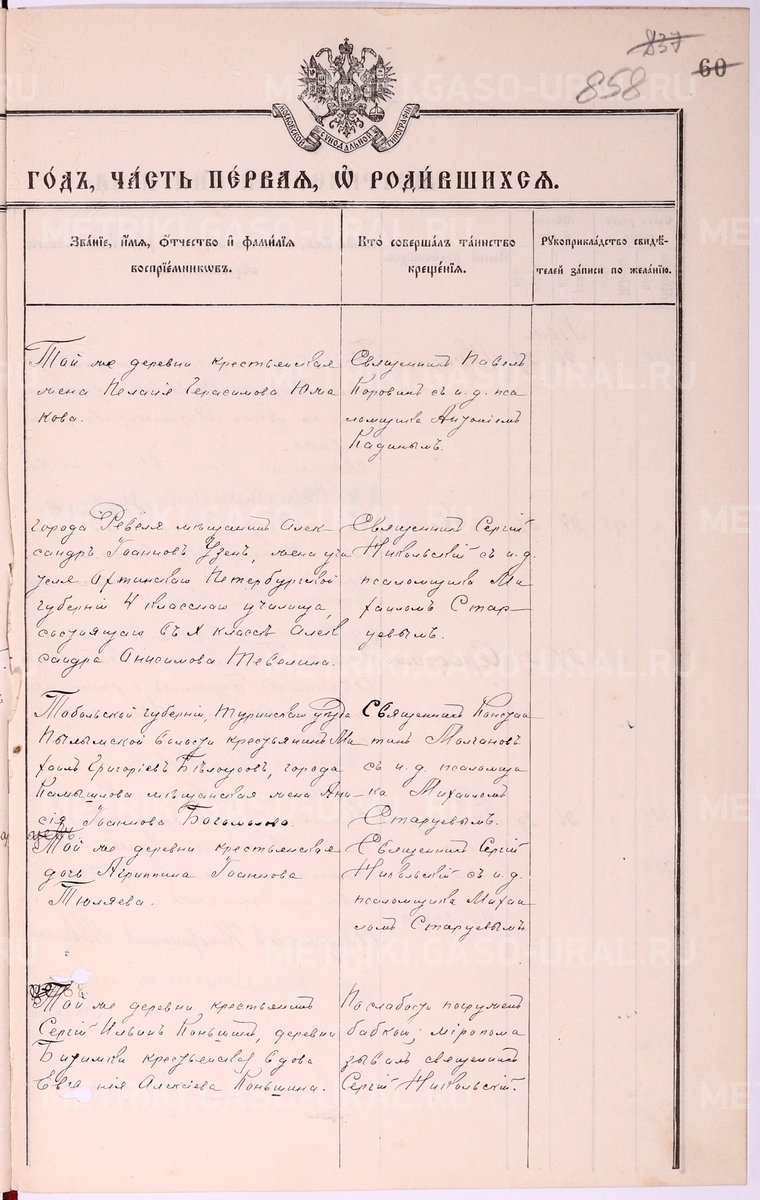 837
858
60
МОСКОВСКОЙ СѴНОДАЛЬНОЙ ТИПОГРАФІИ
METRIKI.GASO-URAL.RU
ГО́ДЪ, ЧА́СТЬ ПЕ́РВАЯ, Ѡ҆ РОДИ́ВШИХСЯ.
Зва́ніе, и҆́мя, ѻ҆́тчество и҆ фами́лія
воспріе́мникѡвъ.
Кто̀ соверша́лъ та́инство
креще́нія.
Рꙋкоприкла́дство свидѣ́-
телей за́писи по жела́нію.
Той же деревни крестьянская
жена Пелагія Герасимова Юшма
кова.
Священникъ Павелъ
Коровинъ съ и. д. пса
ломщика Антоніемъ
Кадинымъ.
города Ревеля мѣщанинъ Алек-
сандръ Іоанновъ Узенъ, жена учи
теля Охтинскаго Петербургской
губерніи 4 класснаго училища,
состоящаго въ X классѣ Алек
сандра Онисимова Тевелина.
Священникъ Сергій
Никольскій съ и. д.
псаломщика Ми
хаиломъ Стар-
цевымъ.
Тобольской губерніи, Туринскаго уѣзда
Пылымской волости крестьянинъ Ми
хаилъ Григоріевъ Бѣлоусовъ, города
Камышлова мѣщанская жена Ани
сія Іоаннова Богомолова.
Священникъ Констан
тинъ Молчановъ
съ и. д. псаломщи
ка Михаиломъ
Старцевымъ.
Той же деревни крестьянская
дочь Агриппина Іоаннова
Тюляева.
Священникъ Сергій
Никольскій съ и. д.
псаломщика Михаи
ломъ Старцевымъ
Той же деревни крестьянинъ
Сергій Ильинъ Коньшинъ, деревни
Битимки крестьянская вдова
Евгенія Алексіева Коньшина.
По слабости погруженъ
бабкой; мѵропома
зывалъ священникъ
Сергій Никольскій.